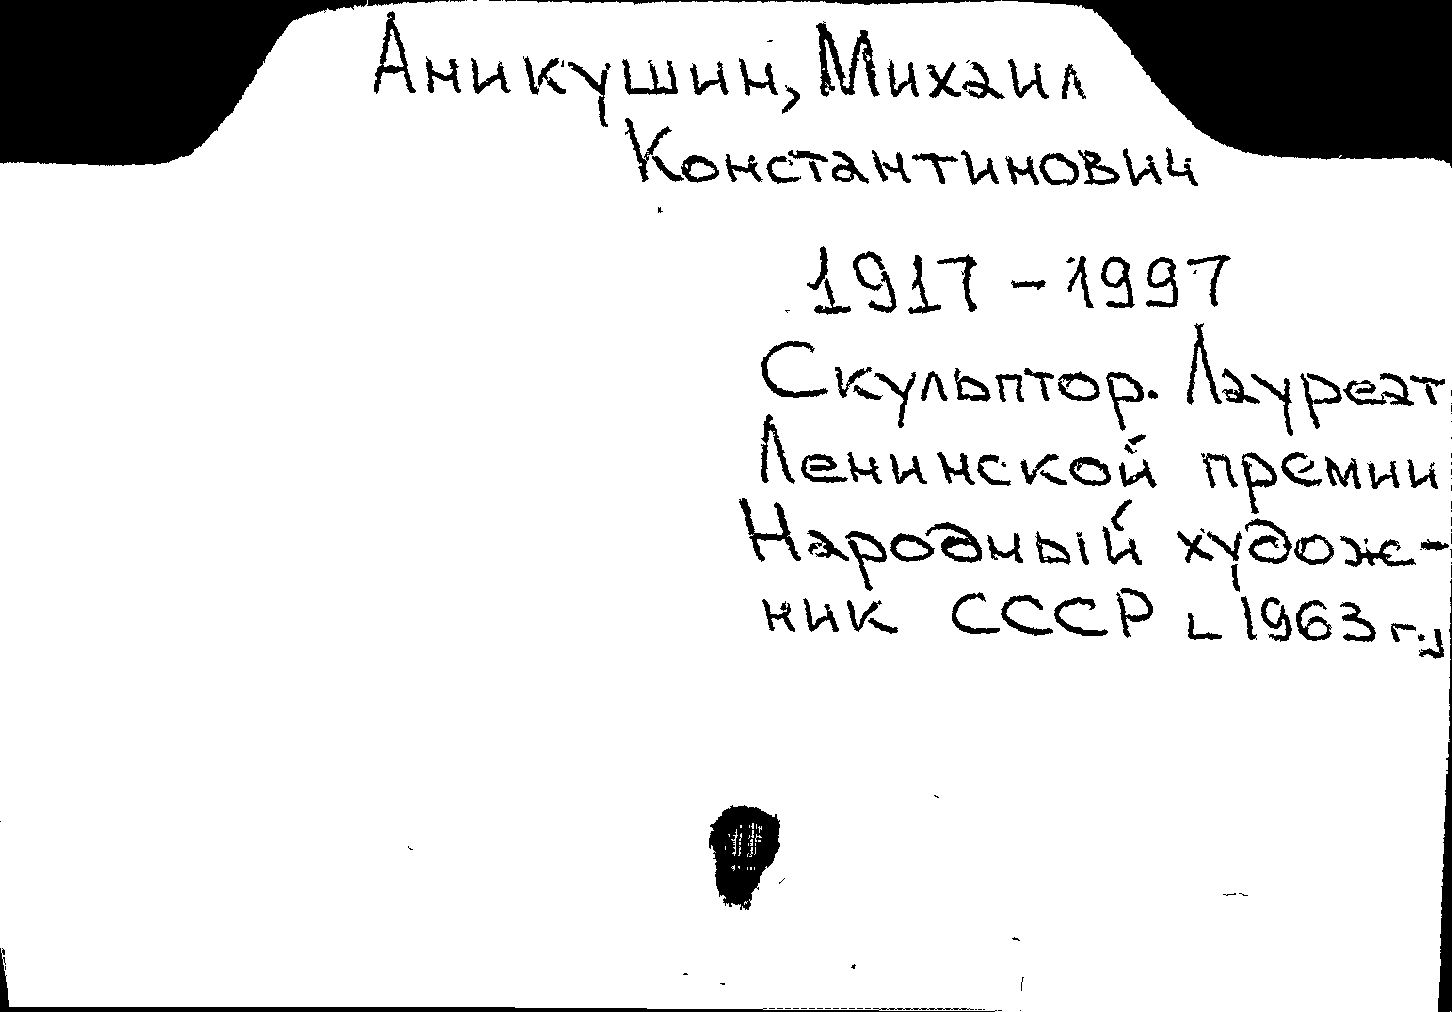 Аникушин, Михаил
Константинович
1917 - 1997
Скульптор. Лауреат
Ленинской премии
Народный худож-
ник СССР [1963 г.]